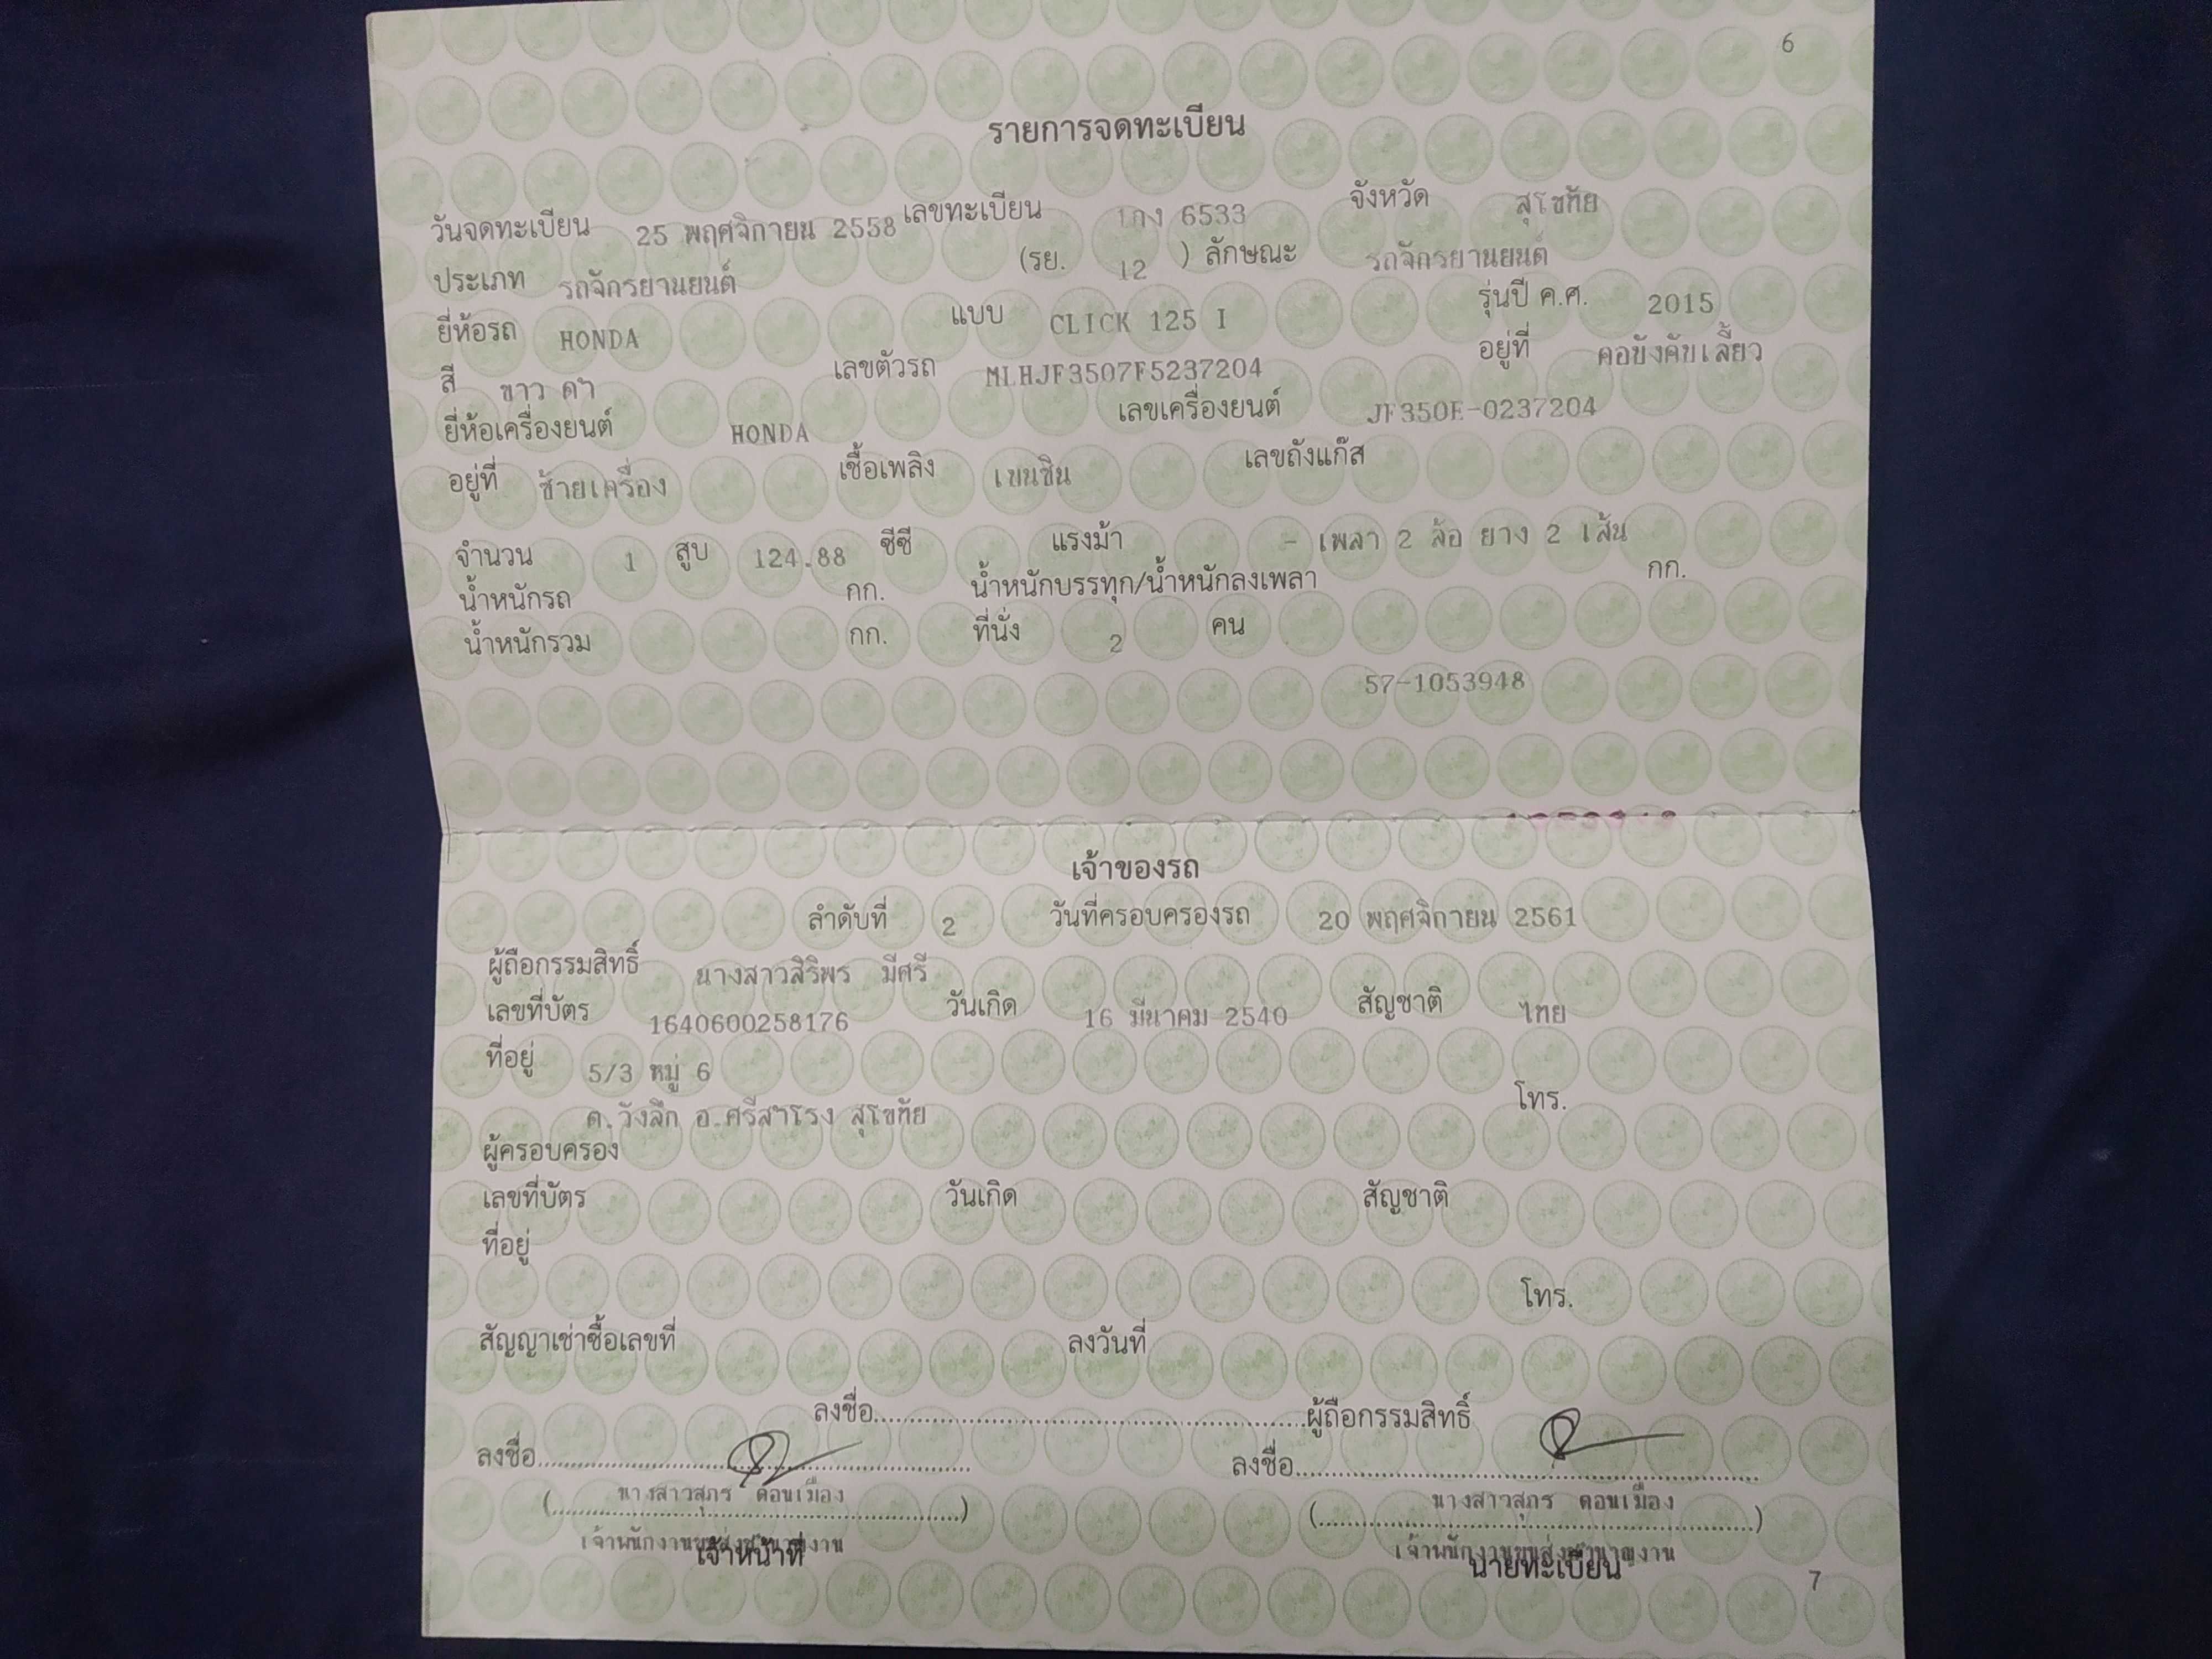 6
รายการจดทะเบียน
วันจดทะเบียน 25 พฤศจิกายน 2558 เลขทะเบียน 1กง 6533 จังหวัด สุโขทัย
ประเภท รถจักรยานยนต์ (รย. 12 ) ลักษณะ รถจักรยานยนต์
ยี่ห้อรถ HONDA แบบ CLICK 125 I รุ่นปี ค.ศ. 2015
สี ขาว ดำ เลขตัวรถ MLHJF3507F5237204 อยู่ที่ คอบังคับเลี้ยว
ยี่ห้อเครื่องยนต์ HONDA เลขเครื่องยนต์ JF350E-0237204
อยู่ที่ ซ้ายเครื่อง เชื้อเพลิง เบนซิน เลขถังแก๊ส
จำนวน 1 สูบ 124.88 ซีซี แรงม้า - เพลา 2 ล้อ ยาง 2 เส้น
น้ำหนักรถ กก. น้ำหนักบรรทุก/น้ำหนักลงเพลา กก.
น้ำหนักรวม กก. ที่นั่ง 2 คน
57-1053948
เจ้าของรถ
ลำดับที่ 2 วันที่ครอบครองรถ 20 พฤศจิกายน 2561
ผู้ถือกรรมสิทธิ์ นางสาวสิริพร มีศรี
เลขที่บัตร 1640600258176 วันเกิด 16 มีนาคม 2540 สัญชาติ ไทย
ที่อยู่ 5/3 หมู่ 6
ต.วังลึก อ.ศรีสำโรง สุโขทัย โทร.
ผู้ครอบครอง
เลขที่บัตร วันเกิด สัญชาติ
ที่อยู่
โทร.
สัญญาเช่าซื้อเลขที่ ลงวันที่
ลงชื่อ..........ผู้ถือกรรมสิทธิ์
ลงชื่อ.......... ลงชื่อ..........
(นางสาวสุภร ดอนเมือง) (นางสาวสุภร ดอนเมือง)
เจ้าพนักงานขนส่งชำนาญงาน เจ้าพนักงานขนส่งชำนาญงาน
เจ้าหน้าที่ นายทะเบียน
7